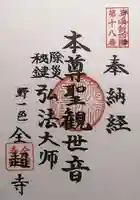 奉納経
第十八番
本尊聖観世音
除災
秘鍵
弘法大師
野一邑
全超寺